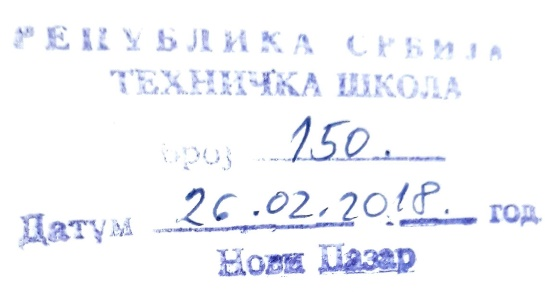 РЕПУБЛИКА СРБИЈА
ТЕХНИЧКА ШКОЛА
Број 150.
Датум 26.02.2018. год
Нови Пазар